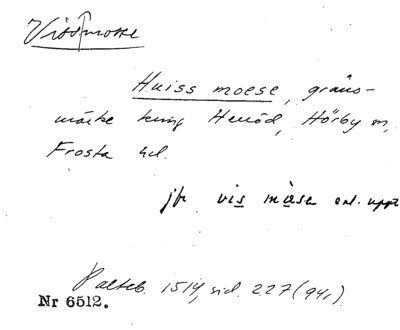 Vissmosse
Huiss moese, gräns-
märke kring Henöd, Hörby sn,
Frosta hd.
jfr vis mòse enl. uppt
Palteb. 1514, sid. 227 (94r)
Nr 6512.